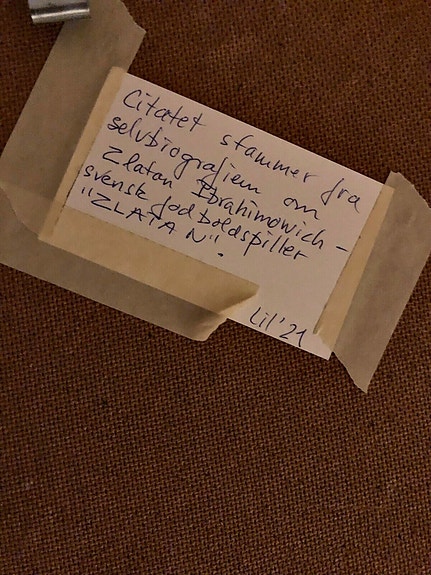 Citatet stammer fra
selvbiografien om
Zlatan Ibrahimowich -
svensk fodboldspiller
"ZLATAN".
Lil'21